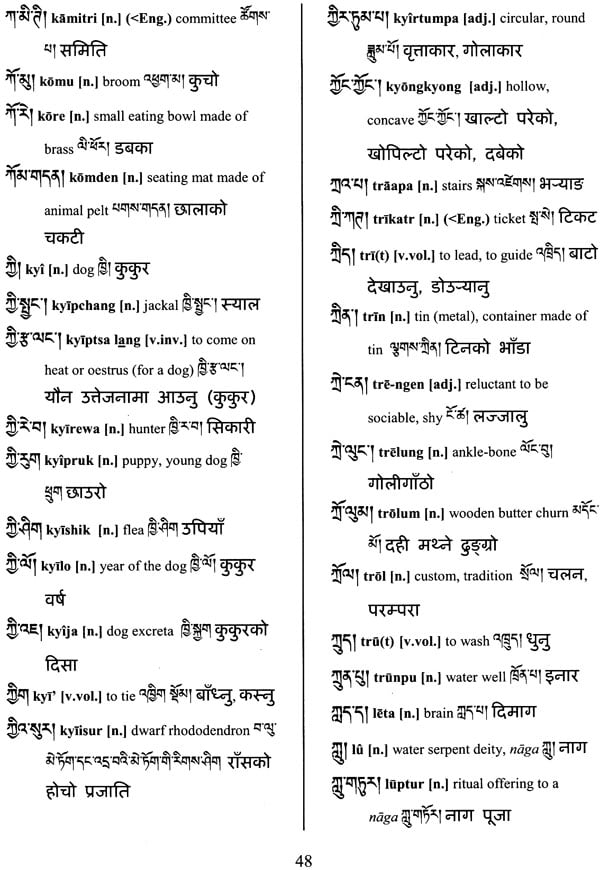 ཀ་མི་ཊི། kāmitri [n.] (<Eng.) committee ཚོགས་
པ། समिति
ཀོ་མུ། kōmu [n.] broom འཕྱག་མ། कुचो
ཀོ་རེ། kōre [n.] small eating bowl made of
brass ལི་ཕོར། डबका
ཀོམ་གདན། kōmden [n.] seating mat made of
animal pelt པགས་གདན། छालाको
चकटी
ཀྱི། kyî [n.] dog ཁྱི། कुकुर
ཀྱི་སྤྱང་། kyīpchang [n.] jackal ཁྱི་སྤྱང་། स्याल
ཀྱི་རྩ་ལང་། kyīptsa lang [v.inv.] to come on
heat or oestrus (for a dog) ཁྱི་རྩ་ལང་།
यौन उत्तेजनामा आउनु (कुकुर)
ཀྱི་རེ་བ། kyīrewa [n.] hunter ཁྱི་ར་བ། सिकारी
ཀྱི་རུག kyīpruk [n.] puppy, young dog ཁྱི་
ཕྲུག छाउरो
ཀྱི་ཤིག kyīshik [n.] flea ཁྱི་ཤིག उपियाँ
ཀྱི་ལོ། kyīlo [n.] year of the dog ཁྱི་ལོ། कुकुर
वर्ष
ཀྱི་འཇ། kyīja [n.] dog excreta ཁྱི་སྐྱག कुकुरको
दिसा
ཀྱིག kyī’ [v.vol.] to tie འཁྱིག སྡོམ། बाँध्नु, कस्नु
ཀྱིའི་སུར། kyīisur [n.] dwarf rhododendron བ་ལུ་
མེ་ཏོག་དང་འདྲ་བའི་མེ་ཏོག་གི་རིགས་ཤིག राँसको
होचो प्रजाति
ཀྱིར་ཏུམ་པ། kyîrtumpa [adj.] circular, round
ཟླུམ་པོ། वृत्ताकार, गोलाकार
ཀྱོང་ཀྱོང་། kyōngkyong [adj.] hollow,
concave ཀྱོང་ཀྱོང་། खाल्टो परेको,
खोपिल्टो परेको, दबेको
ཀྲའ་པ། trāapa [n.] stairs སྐས་འཛེགས། भऱ्याङ
ཀྲི་ཀཊ། trīkatr [n.] (<Eng.) ticket སྤ་སེ། टिकट
ཀྲིད། trī(t) [v.vol.] to lead, to guide འཁྲིད། बाटो
देखाउनु, डोऱ्यानु
ཀྲིན་། trīn [n.] tin (metal), container made of
tin ལྕགས་ཀྲིན། टिनको भाँडा
ཀྲེ་ངན། trē-ngen [adj.] reluctant to be
sociable, shy ངོ་ཚ། लज्जालु
ཀྲེ་ལུང་། trēlung [n.] ankle-bone ལོང་བུ།
गोलीगाँठो
ཀྲོ་ལུམ། trōlum [n.] wooden butter churn མདོང་
མོ། दही मथ्ने ढुङ्ग्रो
ཀྲོལ། trōl [n.] custom, tradition སྲོལ། चलन,
परम्परा
ཀྲུད། trū(t) [v.vol.] to wash འཁྲུད། धुनु
ཀྲུན་པུ། trūnpu [n.] water well ཁྲོན་པ། इनार
ཀླད་ད། lēta [n.] brain ཀླད་པ། दिमाग
ཀླུ། lû [n.] water serpent deity, nāga ཀླུ། नाग
ཀླུ་གཏུར། lūptur [n.] ritual offering to a
nāga ཀླུ་གཏོར། नाग पूजा
48